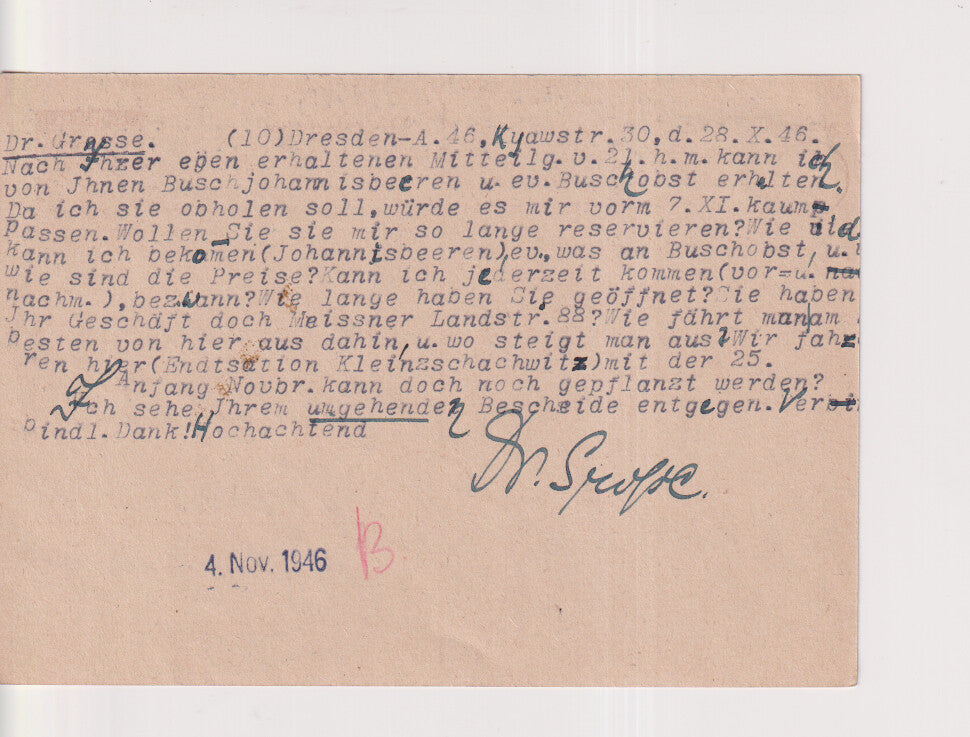 Dr. Grosse. (10)Dresden-A.46,Kyawstr.30,d.28.X.46.
Nach Jhrer eben erhaltenen Mitteilg.v.21.h.m.kann ich
von Jhnen Buschjohannisbeeren u.ev.Buschobst erhalten.
Da ich sie obholen soll,würde es mir vorm 7.XI.kaum
passen.Wollen Sie sie mir so lange reservieren?Wie viel
kann ich bekomen(Johannisbeeren),ev.,was an Buschobst,u.
wie sind die Preise?Kann ich jederzeit kommen(vor=u.
nachm.),bezw.wann?Wie lange haben Sie geöffnet?Sie haben
Jhr Geschäft doch Meissner Landstr.88?Wie fährt man am
besten von hier aus dahin,u.wo steigt man aus?Wir fah=
ren hier(Endtsation Kleinzschachwitz)mit der 25.
Anfang Novbr.kann doch noch gepflanzt werden?
Ich sehe Jhrem umgehenden Bescheide entgegen.Ver
bindl.Dank!Hochachtend
Dr. Grosse.
4. Nov. 1946 B